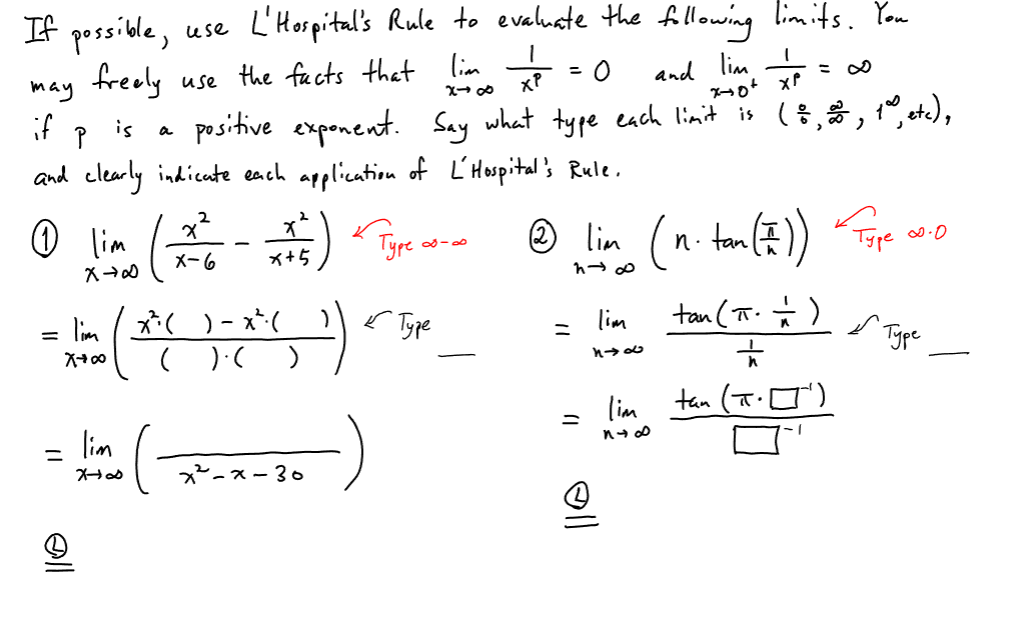 If possible, use L'Hospital's Rule to evaluate the following limits. You
may freely use the facts that lim x→∞ 1/x^p = 0 and lim x→0⁺ 1/x^p = ∞
if p is a positive exponent. Say what type each limit is (0/0, ∞/∞, 1^∞, etc),
and clearly indicate each application of L'Hospital's Rule.
① lim x→∞ (x²/(x-6) - x²/(x+5)) Type ∞-∞
= lim x→∞ ((x²·( ) - x²·( ))/(( )·( ))) Type __
= lim x→∞ ( /(x²-x-30))
Ⓛ =
② lim n→∞ (n·tan(π/n)) Type ∞·0
= lim n→∞ tan(π·1/n)/(1/n) Type __
= lim n→∞ tan(π·□⁻¹)/□⁻¹
Ⓛ =